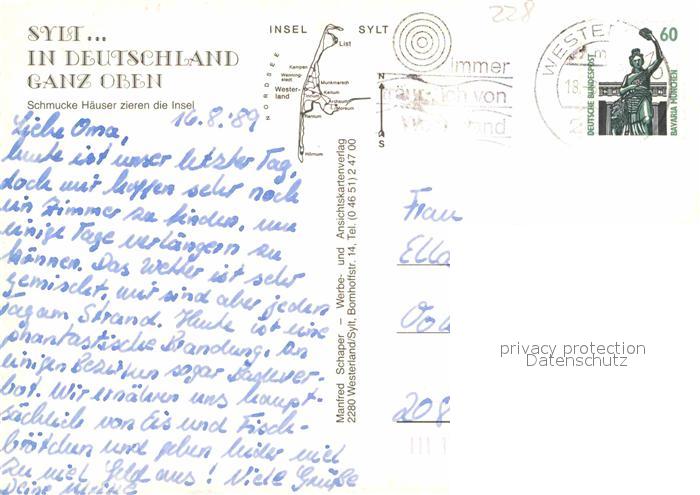 SYLT...
IN DEUTSCHLAND
GANZ OBEN
Schmucke Häuser zieren die Insel
INSEL SYLT
NORDSEE
List
Kampen
Wenning-
stedt
Munkmarsch
Wester-
land
Keitum
Archsum
Morsum
Rantum
Hörnum
N
S
228
immer
ich von
land
WESTE
18.
60
DEUTSCHE BUNDESPOST
BAVARIA MÜNCHEN
16.8.'89
Liebe Oma,
heute ist unser letzter Tag,
doch wir hoffen sehr noch
ein Zimmer zu finden, um
einige Tage verlängern zu
können. Das Wetter ist sehr
gemischt, wir sind aber jeden
Tag am Strand. Heute ist eine
phantastische Brandung. In
einigen Bezirken sogar Badever-
bot. Wir ernähren uns haupt-
sächlich von Eis und Fisch-
brötchen und geben leider viel
zu viel Geld aus! Viele Grüße
Deine
Manfred Schaper – Werbe- und Ansichtskartenverlag
2280 Westerland/Sylt, Bomhoffstr. 14, Tel. (0 46 51) 2 47 00
Frau
Ella
208
privacy protection
Datenschutz